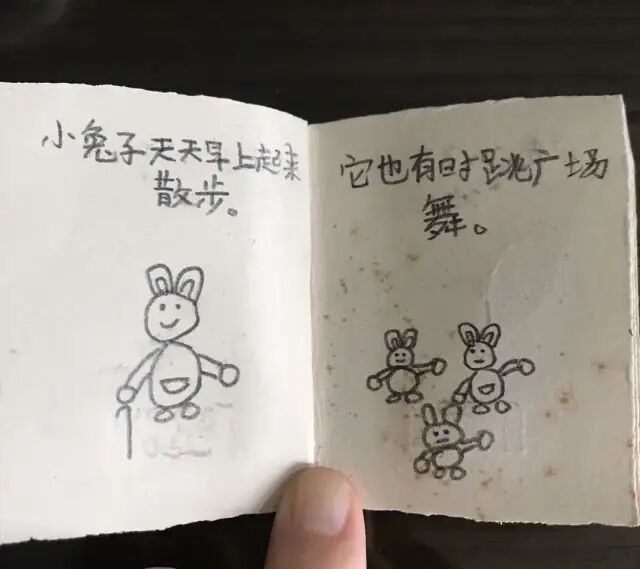 小兔子天天早上起来
散步。
它也有时跳广场
舞。